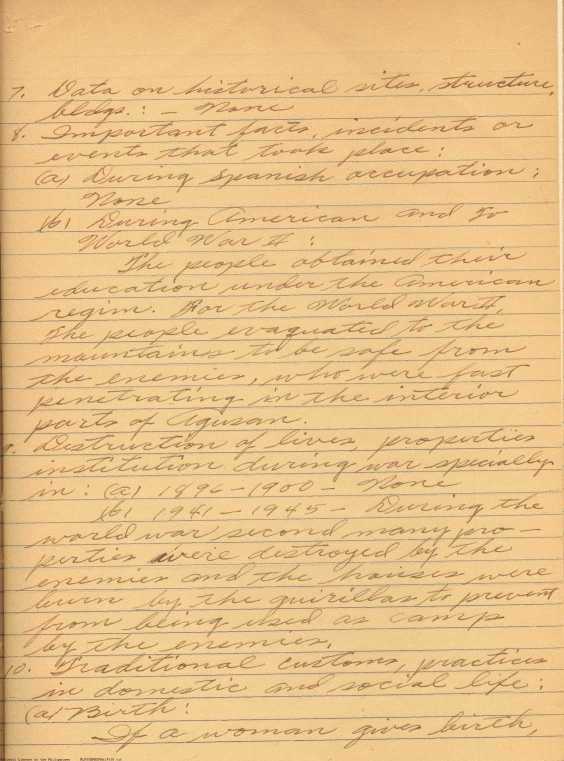 7. Data on historical sites, structure,
bldgs.: - None
8. Important facts, incidents or
events that took place:
(a) During Spanish occupation:
None
(b) During American and To
World War II:
The people obtained their
education under the American
regim. For the World War II,
the people evaquated to the
mountains to be safe from
the enemies, who were fast
penetrating in the interior
parts of Agusan.
9. Destruction of lives, properties
institution during war specially
in: (a) 1896 - 1900 - None
(b) 1941 - 1945 - During the
world war second many pro-
perties were destroyed by the
enemies and the houses were
burn by the guirillas to prevent
from being used as camp
by the enemies.
10. Traditional customs, practices
in domestic and social life:
(a) Birth:
If a woman gives birth,